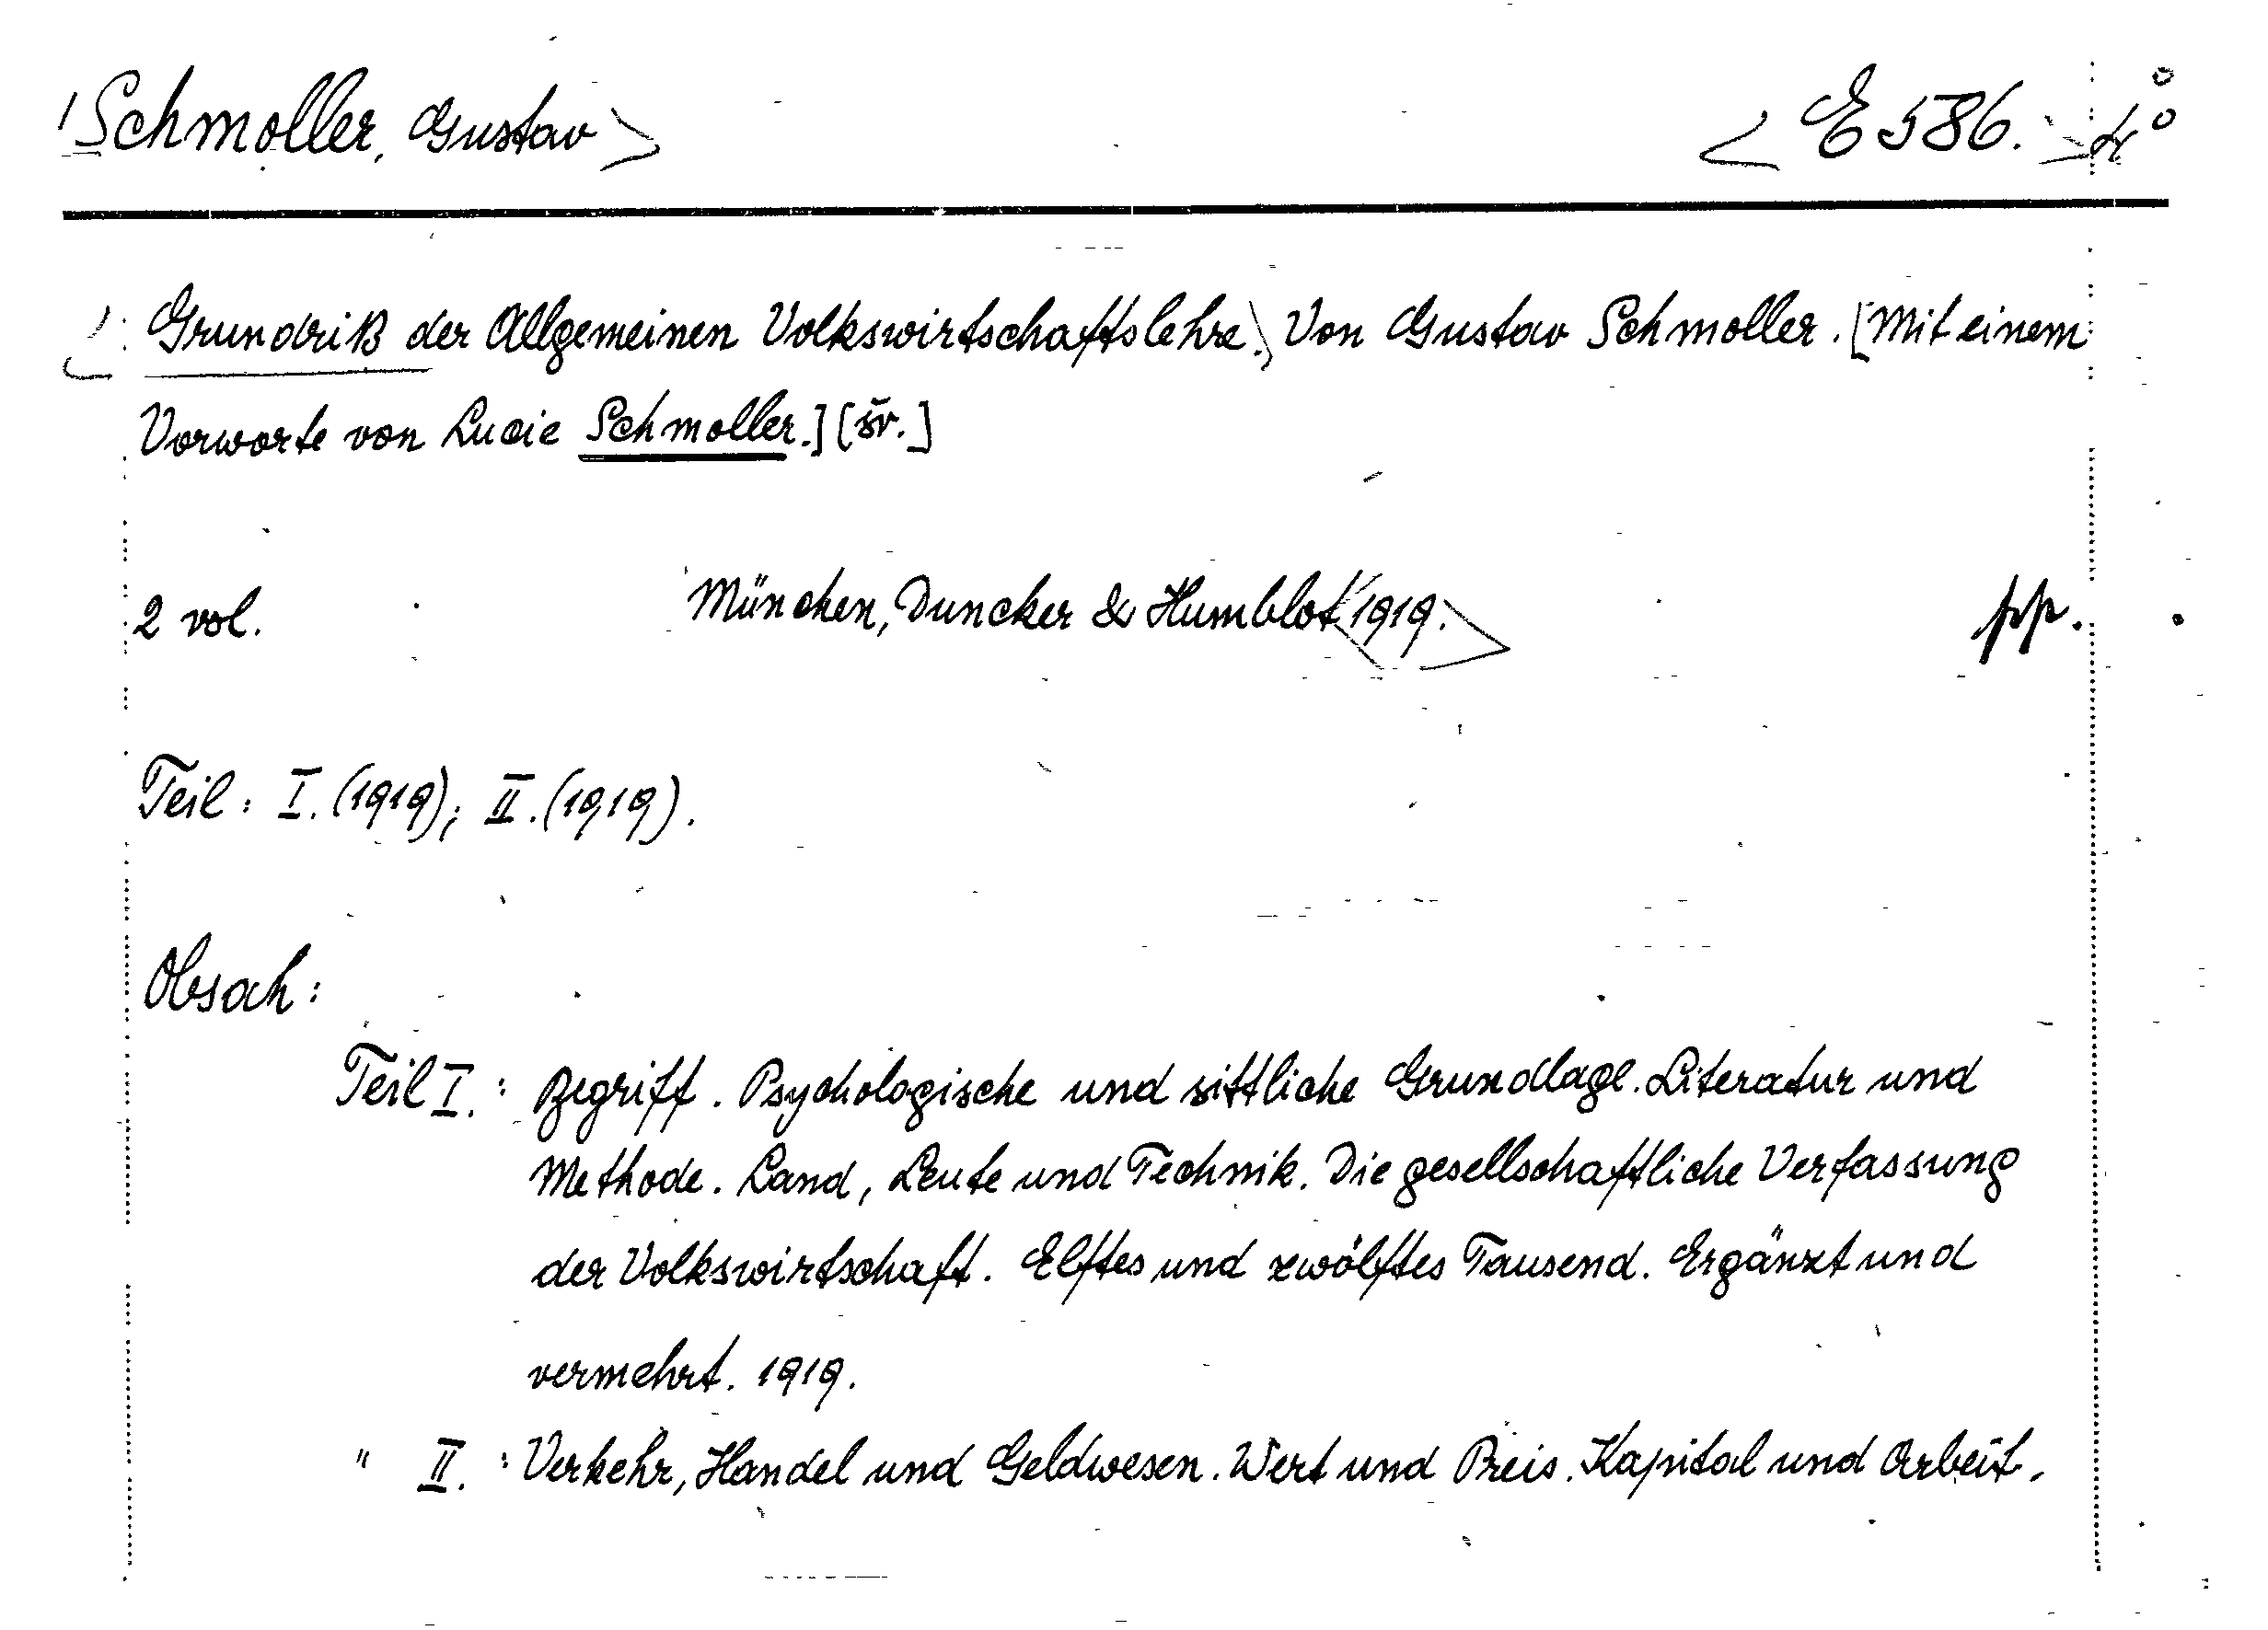 Schmoller, Gustav E 586. 4°
Grundriß der Allgemeinen Volkswirtschaftslehre. Von Gustav Schmoller. [Mit einem
Vorworte von Lucie Schmoller.] [šv.]
2 vol. München, Duncker & Humblot 1919. pp.
Teil: I. (1919); II. (1919).
Obsah:
Teil I.: Begriff. Psychologische und sittliche Grundlage. Literatur und
Methode. Land, Leute und Technik. Die gesellschaftliche Verfassung
der Volkswirtschaft. Elftes und zwölftes Tausend. Ergänzt und
vermehrt. 1919.
" II.: Verkehr, Handel und Geldwesen. Wert und Preis. Kapital und Arbeit.